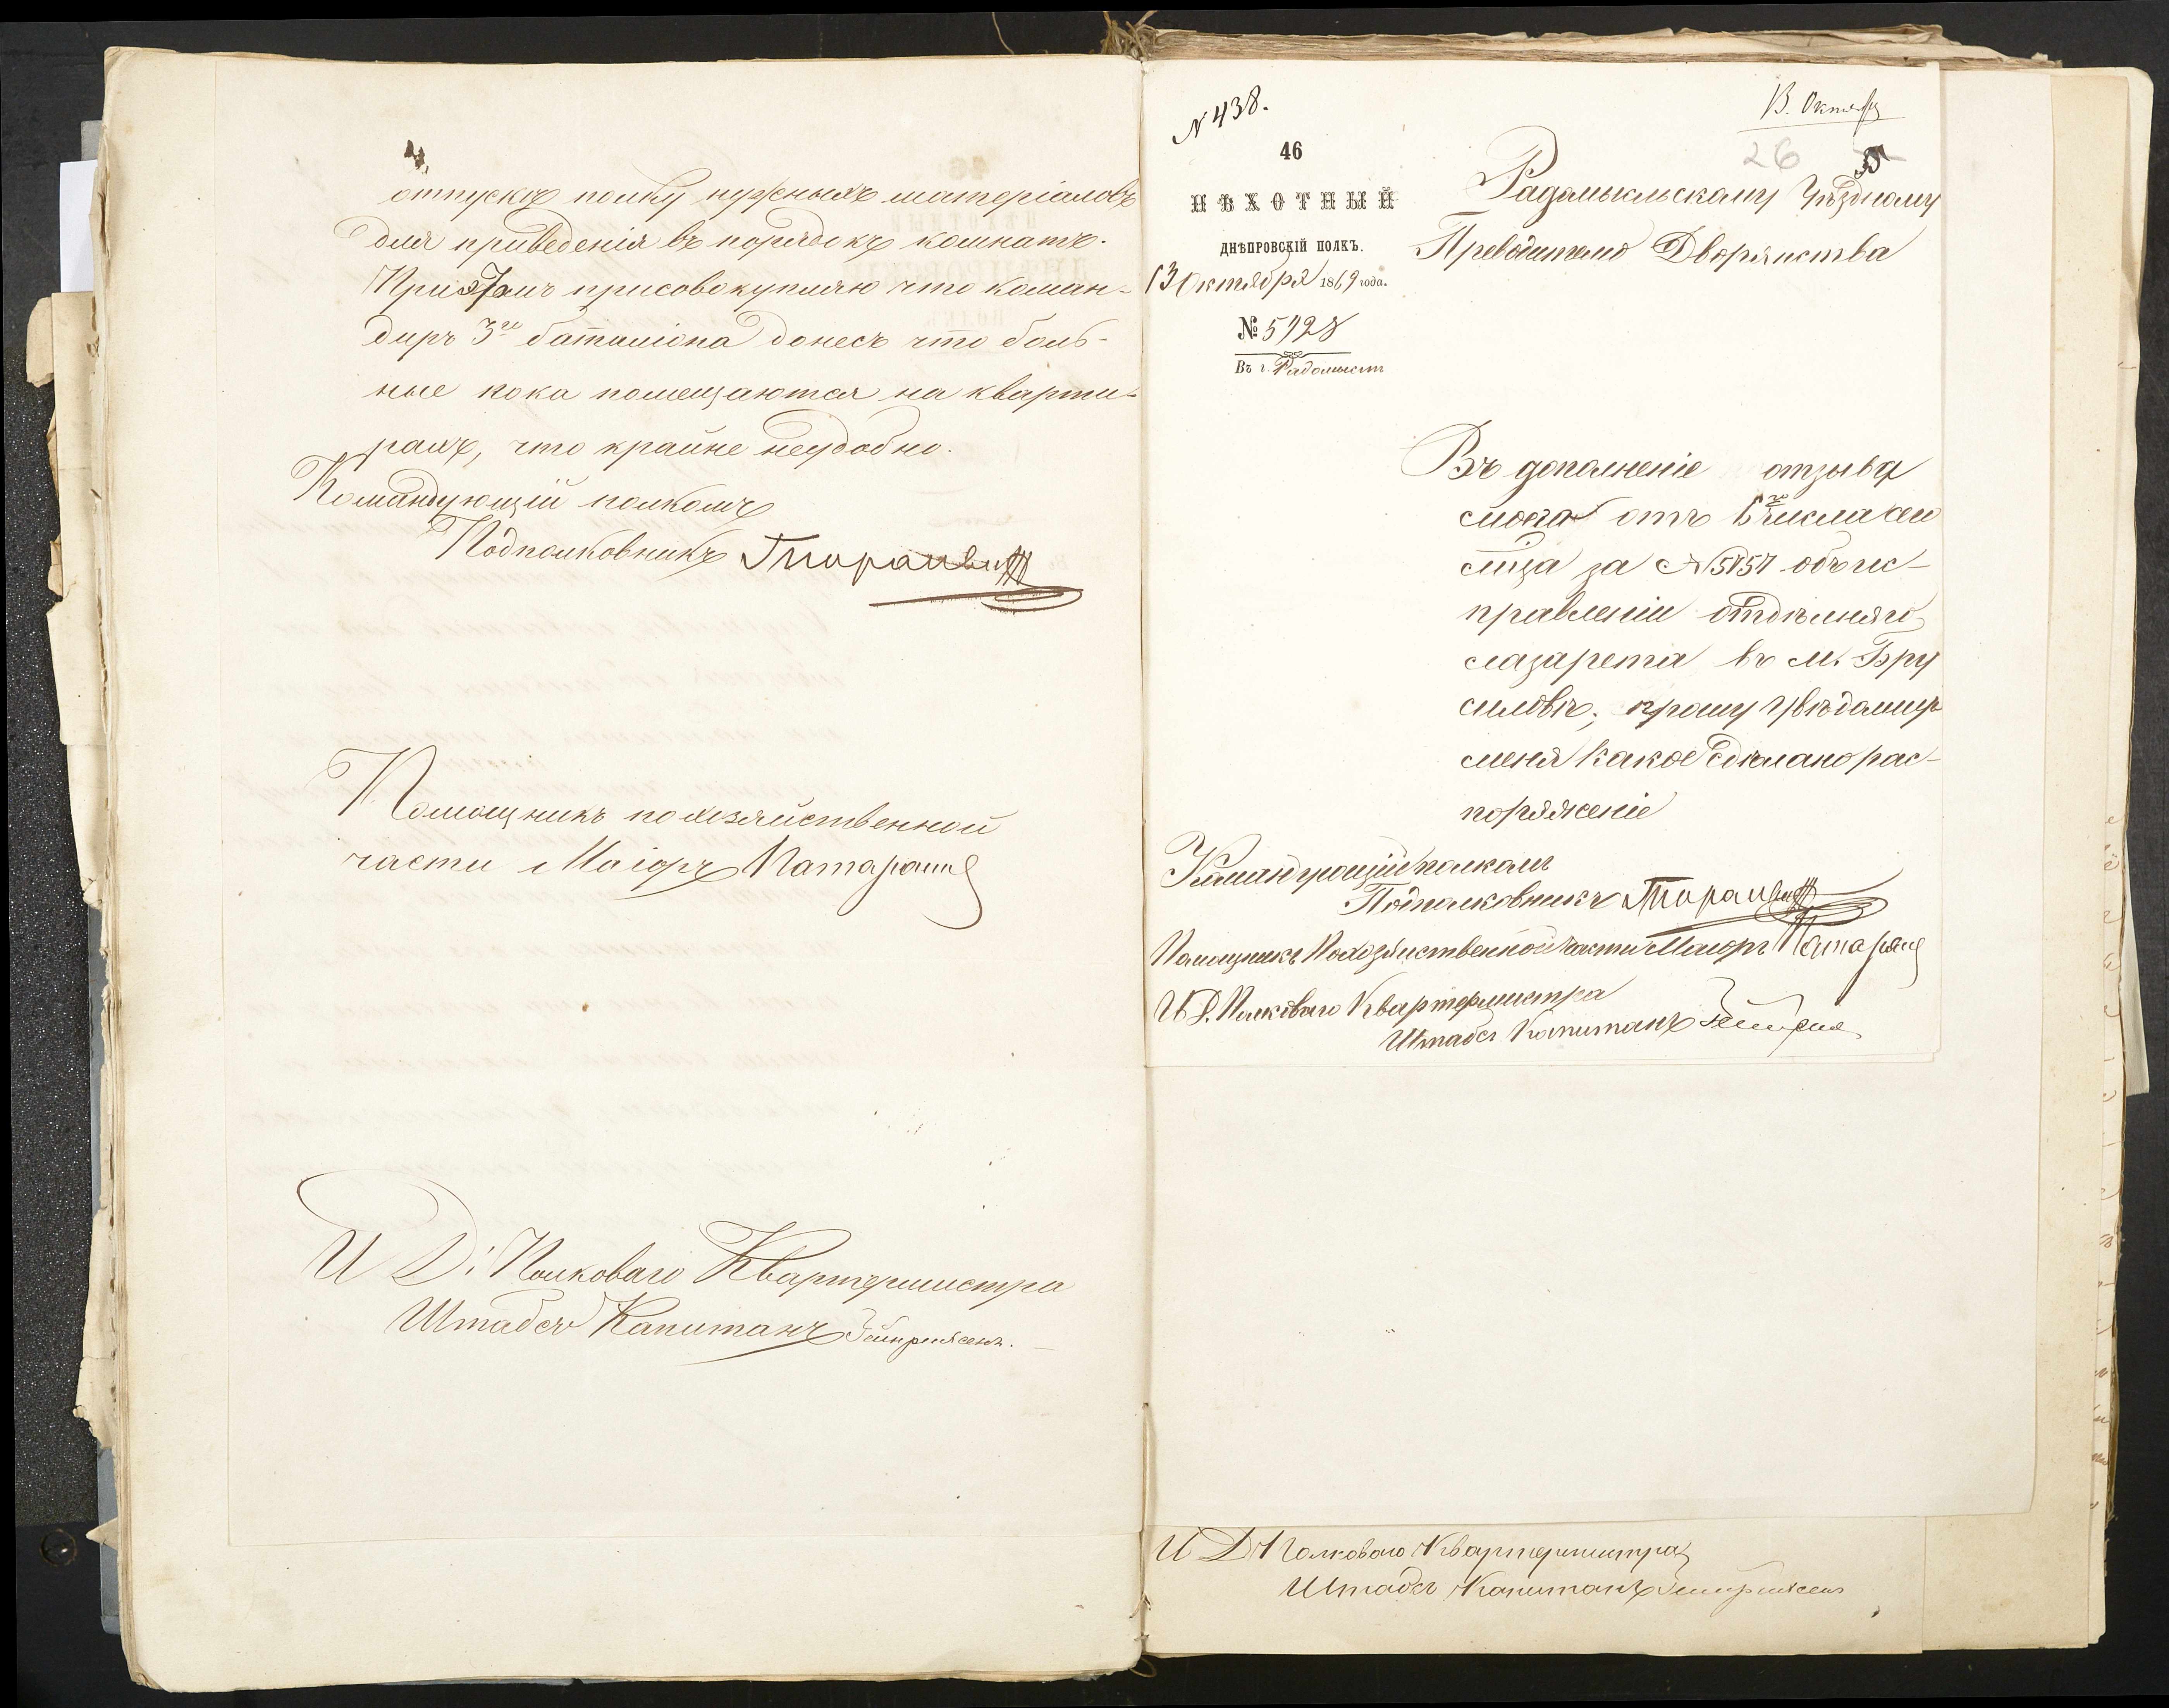 отпуску полку нужныхъ матеріаловъ
для приведенія въ порядокъ комнатъ.
При этомъ присовокупляю что коман-
диръ 3го баталіона донесъ что боль-
ные пока помещаются на кварти-
рахъ, что крайне неудобно.
Командующій полкомъ
Подполковникъ
Помощникъ по хозяйственной
части Маіоръ
И Д. Полковаго Квартермистра
Штабсъ Капитанъ
№ 438.
13. Октября
46
26
ПѢХОТНЫЙ
ДНѢПРОВСКІЙ ПОЛКЪ.
13 Октября 1869 года.
№ 5928
Въ г. Радомысль
Радомысльскому Уѣздному
Преводителю Дворянства
Въ дополненіе отзыва
моего отъ 6го числа ме
сяца за № 5757 объ ис-
правленіи отдѣлняго
лазарета въ м. Бру
силовѣ; прошу увѣдомить
меня какое сдѣлано рас-
поряженіе
Командующій полкомъ
Подполковникъ
Помощникъ По хозяйственной части Маіоръ
И Д. Полковаго Квартермистра
Штабсъ Капитанъ
И Д Полковаго Квартермистра
Штабсъ Капитанъ